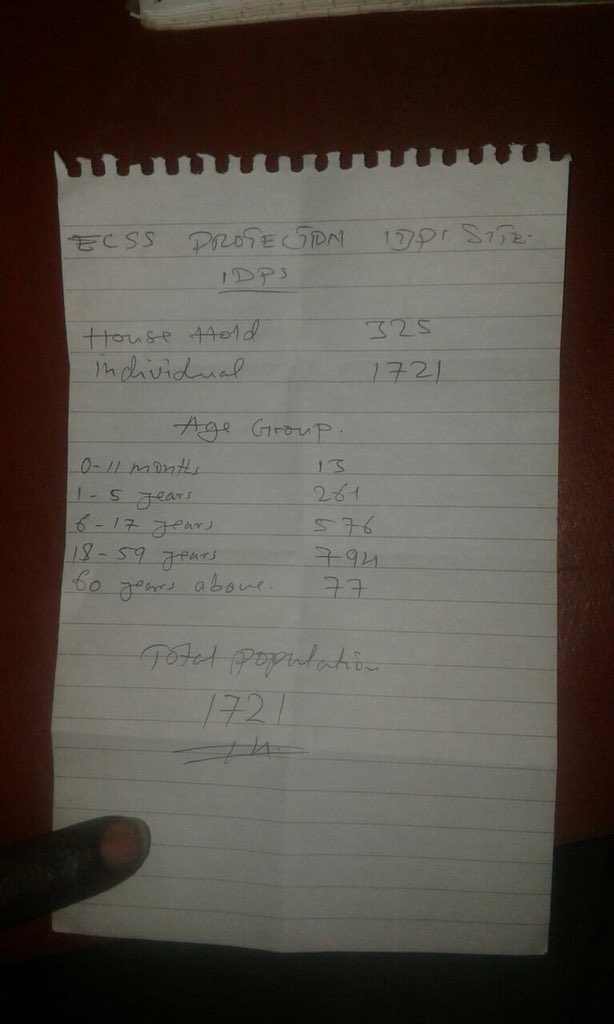 ECSS PROTECTION IDPs SITE.
IDPS
House Hold 325
individual 1721
Age Group.
0-11 months 13
1-5 years 261
6-17 years 576
18-59 years 794
60 years above. 77
Total population
1721